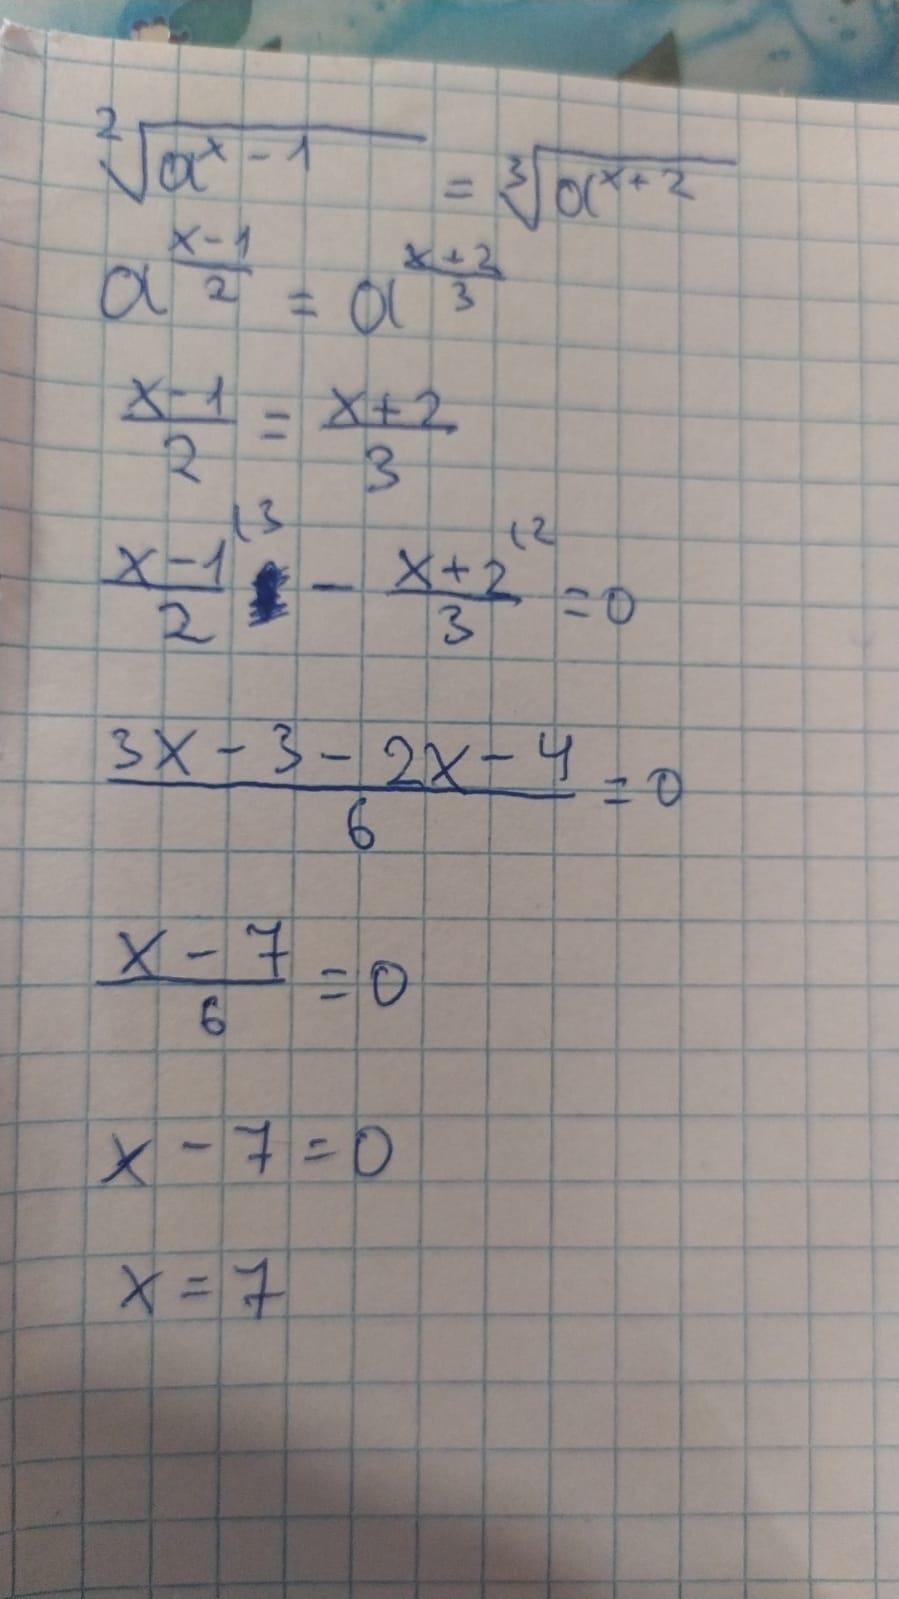 ²√(aˣ⁻¹) = ³√(aˣ⁺²)
a^((x-1)/2) = a^((x+2)/3)
(x-1)/2 = (x+2)/3
(x-1)/2 ⁽³ - (x+2)/3 ⁽² = 0
(3x - 3 - 2x - 4)/6 = 0
(x - 7)/6 = 0
x - 7 = 0
x = 7